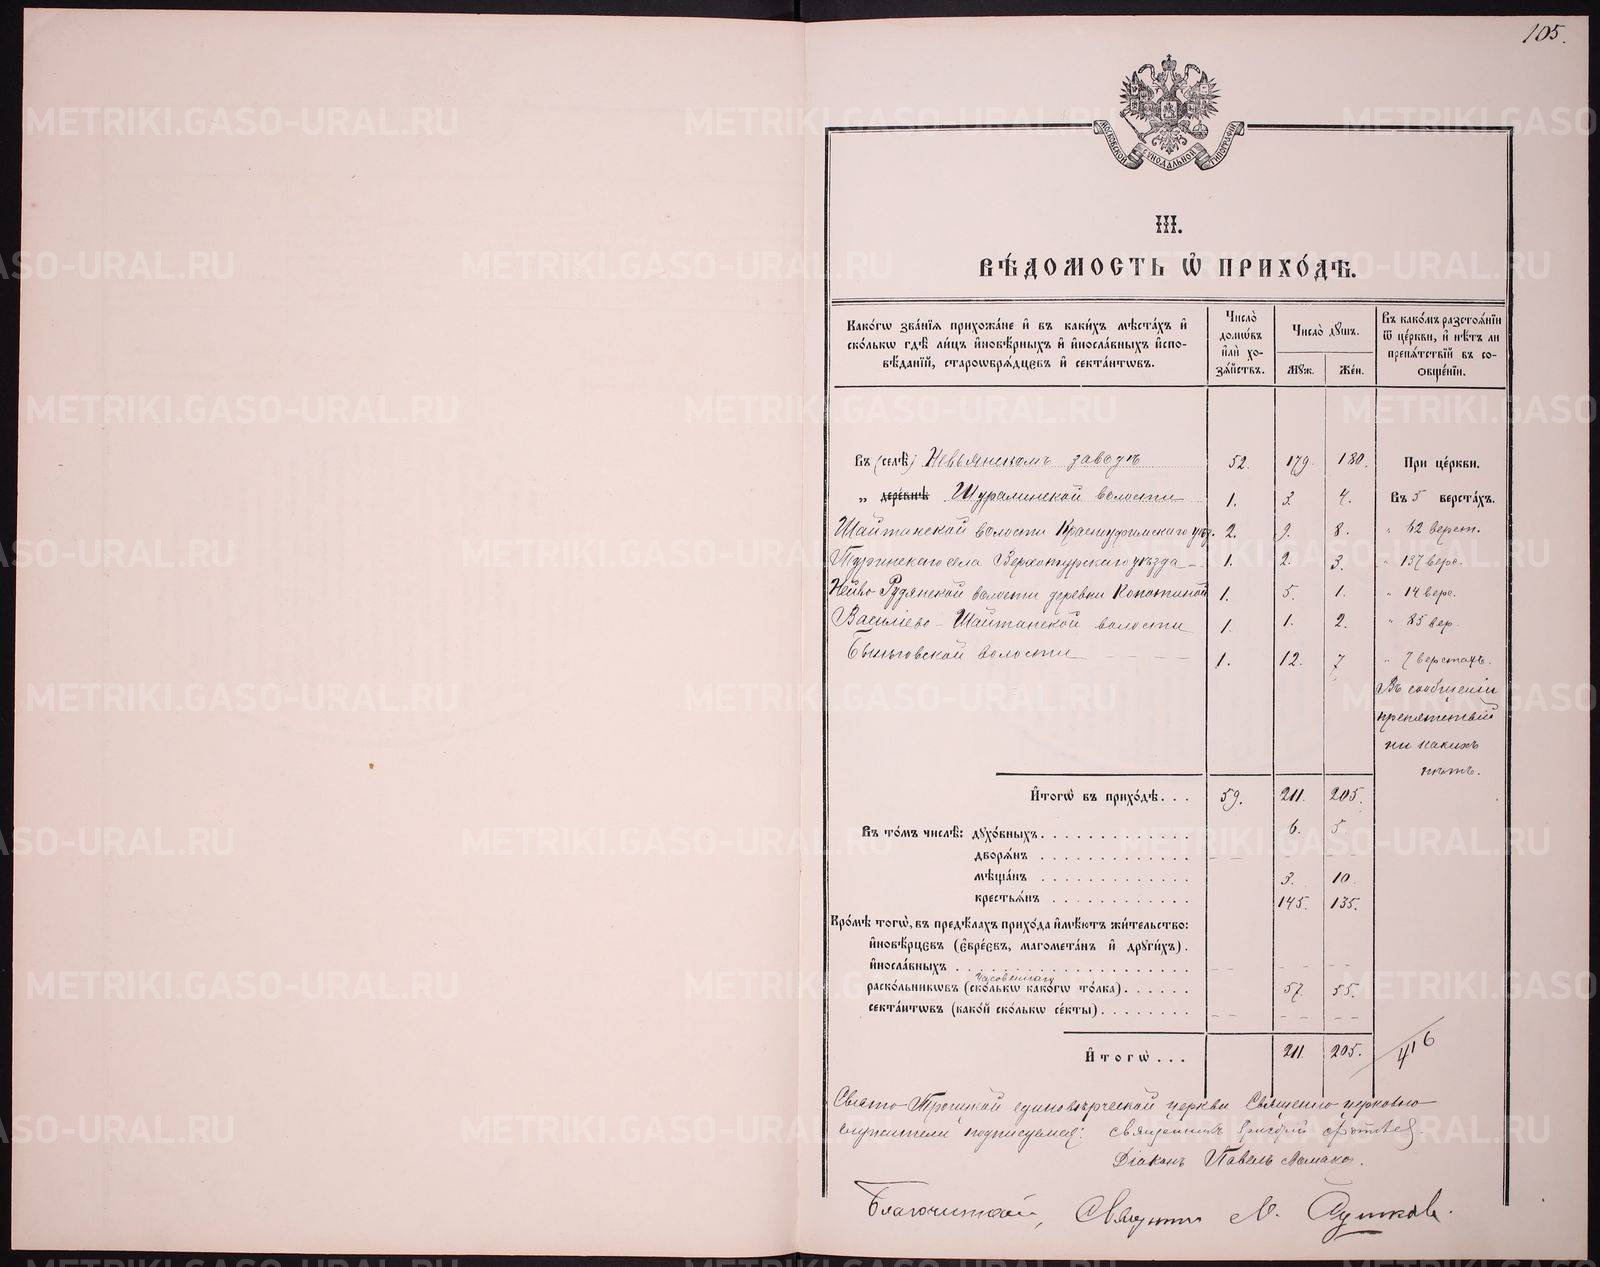 105.
МОСКОВСКОЙ СѴНОДАЛЬНОЙ ТИПОГРАФІИ
III.
ВѢ́ДОМОСТЬ Ѡ҆ ПРИХО́ДѢ.
Како́гѡ зва́нїѧ прихожа́не и҆ въ каки́хъ мѣ́стахъ и҆
ско́лькѡ гдѣ̀ ли́цъ и҆новѣ́рныхъ и҆ и҆носла́вныхъ и҆спо-
вѣ́данїй, староѡбрѧ́дцевъ и҆ секта́нтѡвъ.
Число̀
домѡ́въ
и҆лѝ хо-
зѧ́йствъ.
Число̀ дꙋ́шъ.
Мꙋж.
Же́н.
Въ како́мъ разстоѧ́нїи
ѿ це́ркви, и҆ нѣ́тъ ли
препѧ́тствїй въ со-
ѻбще́нїи.
Въ (селѣ̀) Невьянскомъ заводѣ 52. 179. 180. При це́ркви.
„ дере́внѣ Шуралинской волости 1. 3. 4. Въ 5 верста́хъ.
Шайтанской волости Красноуфимскаго уѣз. 2. 9. 8. „ 62 верст.
Туринскаго села Верхотурскаго уѣзда 1. 2. 3. „ 137 верс.
Нейво-Рудянской волости деревни Копотиной 1. 5. 1. „ 14 верс.
Василіево-Шайтанской волости 1. 1. 2. „ 85 вер.
Быньговской волости 1. 12. 7 „ 7 верстахъ.
Въ сообщеніи
препятствій
ни какихъ
нѣтъ.
И҆тогѡ̀ въ прихо́дѣ . . . 59. 211. 205.
Въ то́мъ числѣ̀: дꙋхо́вныхъ . . . 6. 5.
дворѧ́нъ . . . – – – –
мѣща́нъ . . . 3. 10.
крестьѧ́нъ . . . 145. 135.
Кро́мѣ тогѡ̀, въ предѣ́лахъ прихо́да и҆мѣ́ютъ жи́тельство:
и҆новѣ́рцевъ (є҆вре́евъ, магомета́нъ и҆ дрꙋги́хъ) .
и҆носла́вныхъ . . . – – – –
часовеннаго
раско́льникѡвъ (ско́лькѡ како́гѡ то́лка) . . . 57. 55.
секта́нтѡвъ (како́й ско́лькѡ се́кты) . . . – – – –
И҆тогѡ̀ . . . 211. 205. 416
Свято-Троицкой единовѣрческой церкви Священно-церковно-
служители подписуемся: священникъ Григорій
Діаконъ Павелъ
Благочинный, Священникъ